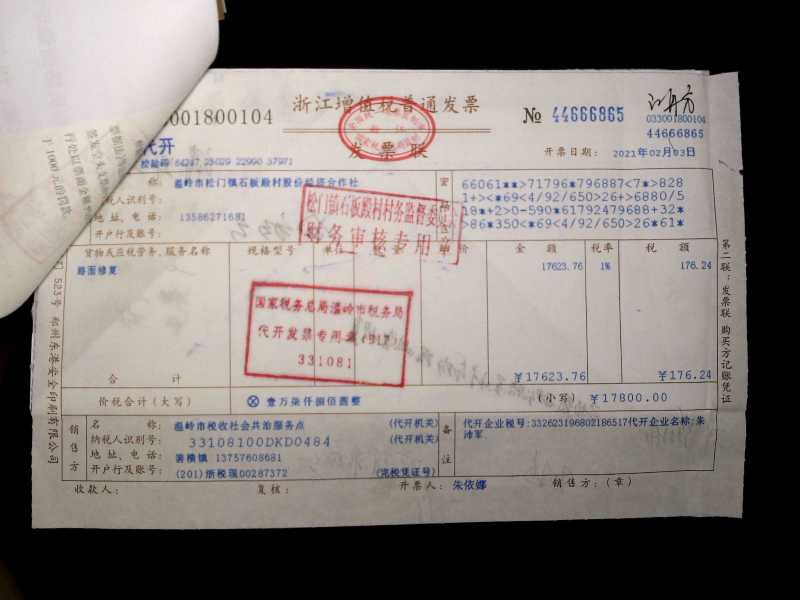 001800104
浙江增值税普通发票
№ 44666865
033001800104
44666865
代开
发票联
开票日期: 2021年02月03日
校验码 64247 25029 22990 37971
称: 温岭市松门镇石板殿村股份经济合作社
人识别号:
地址、电话: 13586271681
开户行及账号:
66061**>71796*796887<7*>828
1+><*69<4/92/650>26+>6880/5
18*+2>0-590*61792479688+32*
>86*350<*69<4/92/650>26*61*
松门镇石板殿村村务监督委
财务审核专用
货物或应税劳务、服务名称 规格型号 单位 金额 税率 税额
路面修复 17623.76 1% 176.24
国家税务总局温岭市税务局
代开发票专用章
331081
合计 ¥17623.76 ¥176.24
价税合计(大写) ⊗ 壹万柒仟捌佰圆整 (小写) ¥17800.00
销售方
名称: 温岭市税收社会共治服务点 (代开机关)
纳税人识别号: 33108100DKD0484 (代开机关)
地址、电话: 箬横镇 13757608681
开户行及账号: (201)浙税现00287372 (完税凭证号)
备注
代开企业税号:332623196802186517代开企业名称:朱
沛军
收款人: 复核: 开票人: 朱依娜 销售方:(章)
第二联:发票联 购买方记账凭证
523号 郑州东港安全印刷有限公司
于1000元的罚款